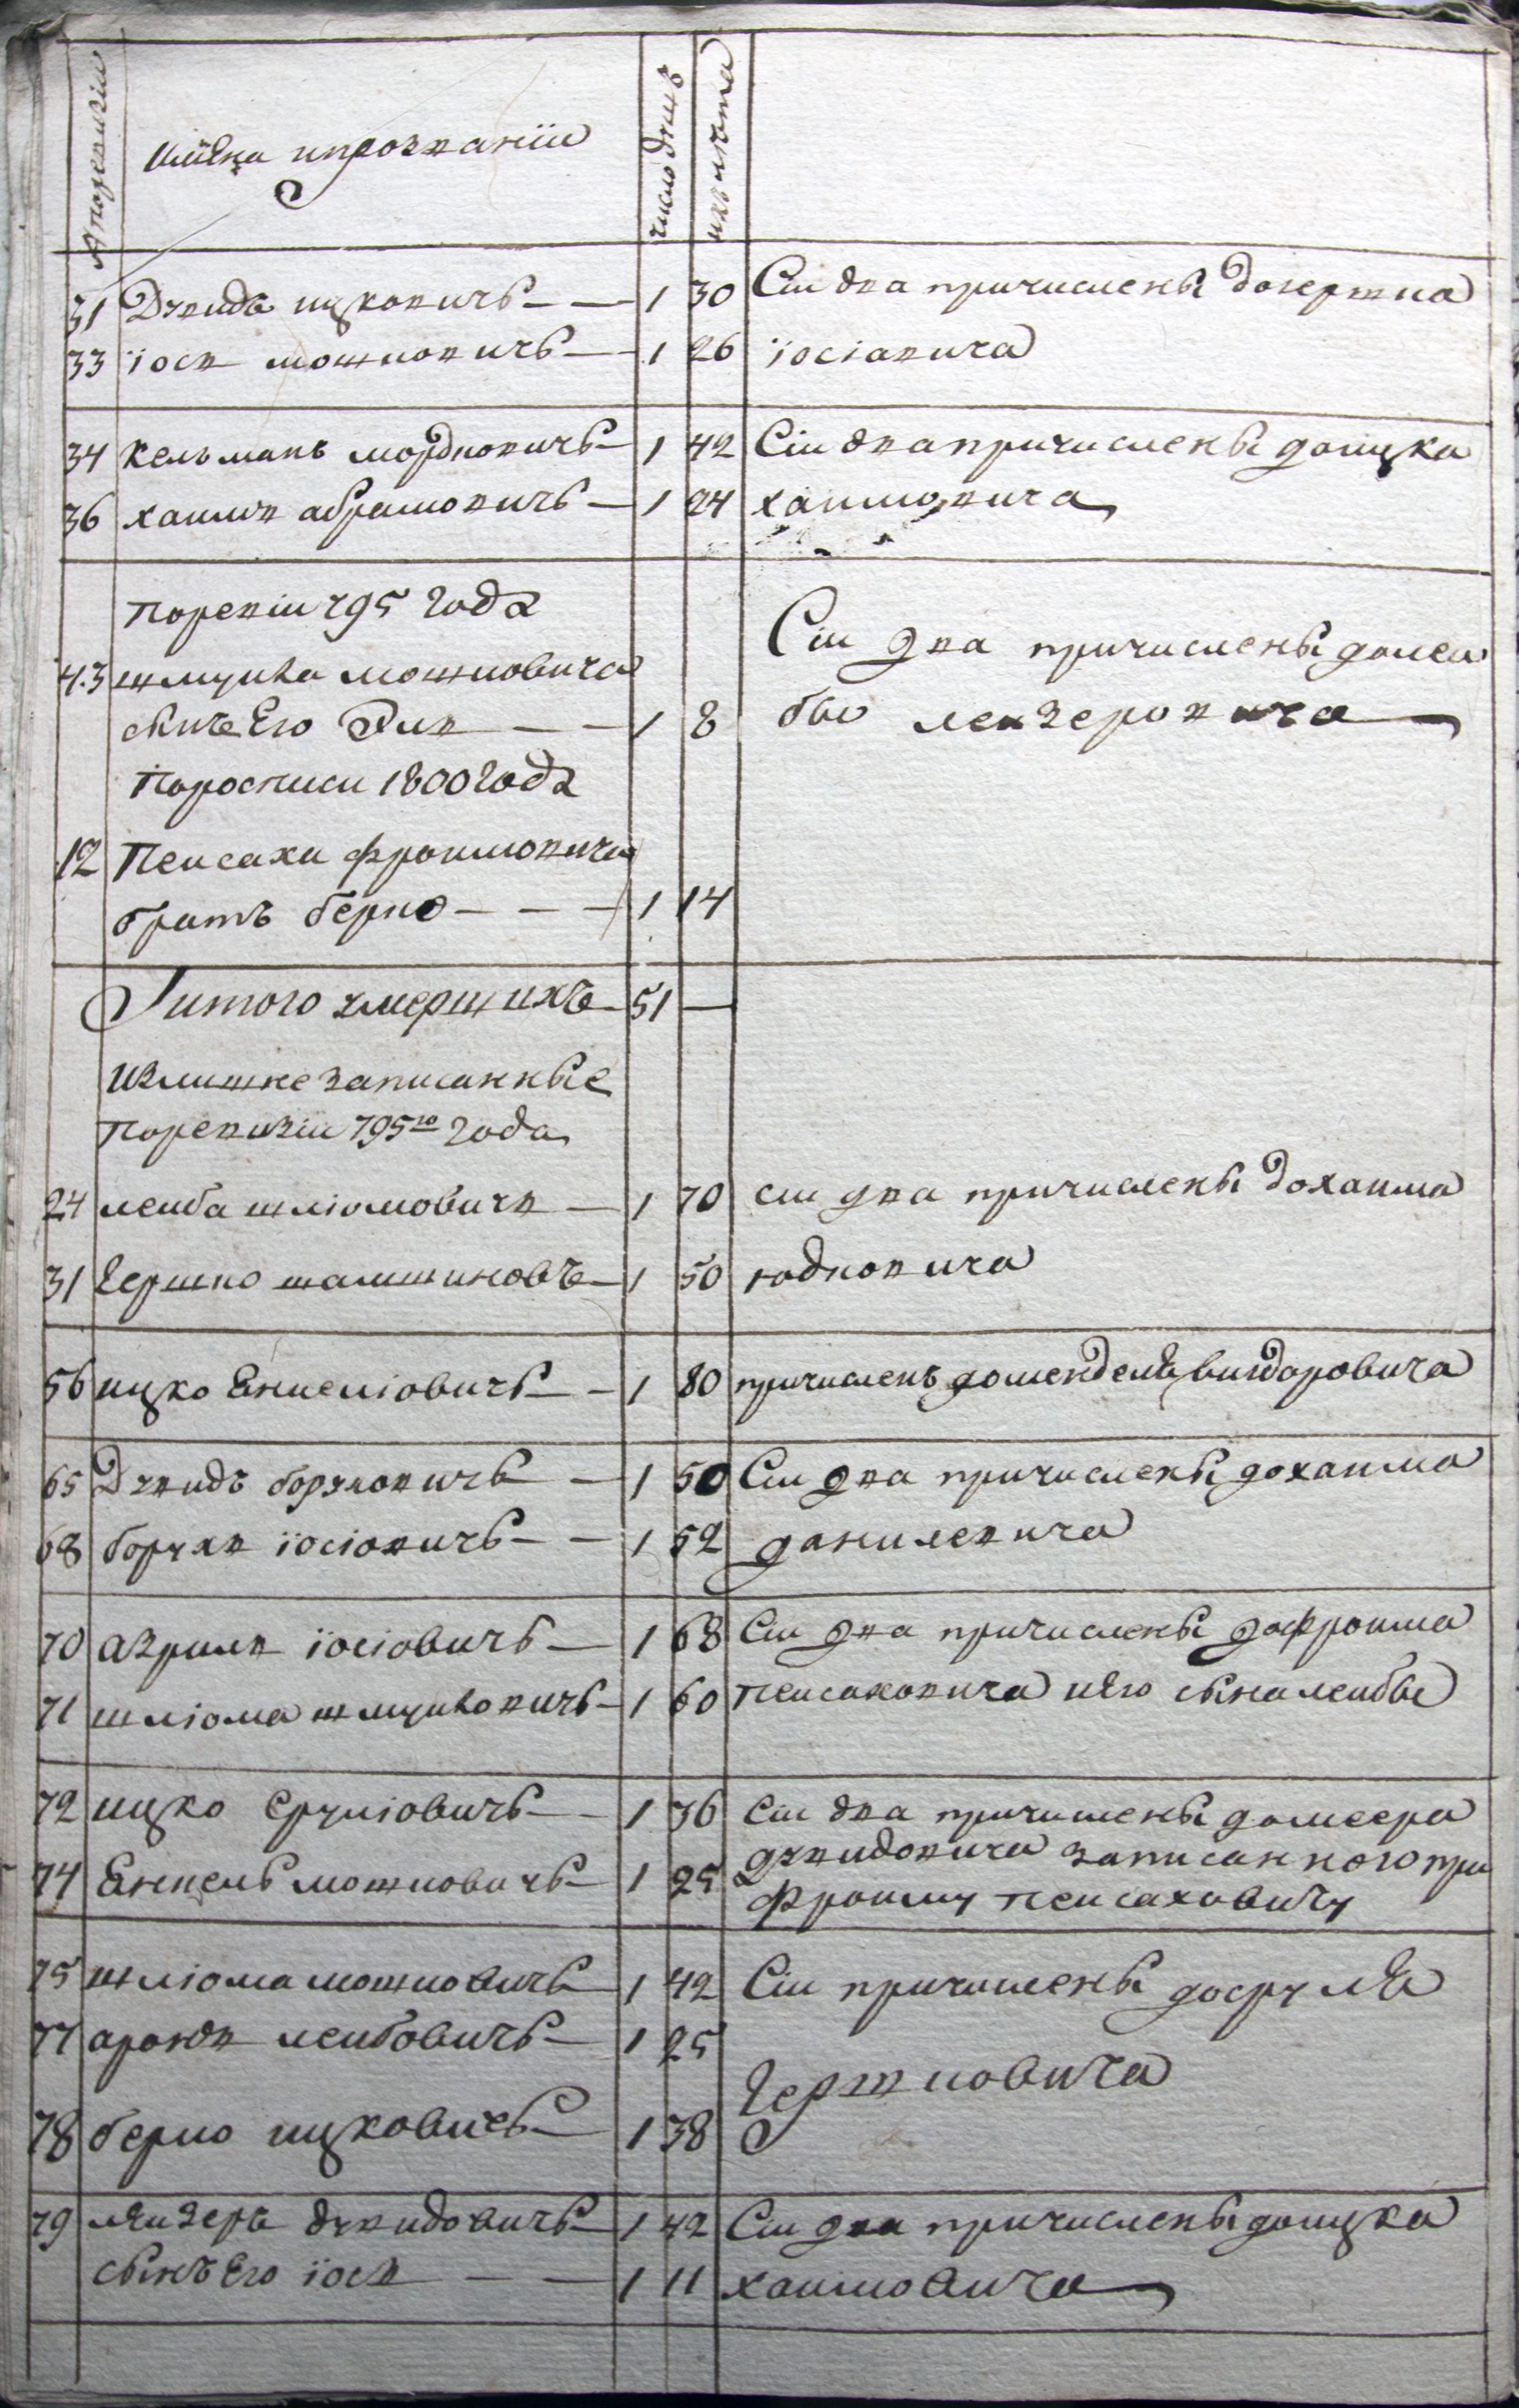 № поревизіи
имена ипрозваніи
число душъ
ихъ лѣта
31 Дувидъ ицковичъ 1 30 Сіи два причислены догершка
33 іосъ мошковичъ 1 26 іосіовича
34 кельманъ мордковичъ 1 42 Сіи два причислены доицка
36 хаимъ абрамовичъ 1 24 хаимовича
поревіи 795 года
43 шмуйла мошковича Сіи два причислены долей
сынъ Его Эля 1 8 бы лейзеровича
поросписи 1800 года
12 Пейсаха фроимовича
братъ берко 1 14
Итого умершихъ 51
Излишне записанные
поревизіи 795го года
24 лейба шліомовичъ 1 70 сіи два причислены дохаима
31 гершко шамшиновъ 1 50 юдковича
56 ицко Енкеліовичъ 1 80 причисленъ доменделя вигдоровича
65 Дувидъ боруховичъ 1 50 Сіи два причислены дохаима
68 борухъ іосіовичъ 1 52 данилевича
70 азриль іосіовичъ 1 68 Сіи два причислены дофроима
71 шліома шмуйловичъ 1 60 пейсаховича иего сына лейбы
72 ицко сруліовичъ 1 36 сіи два причислены домеера
74 Енкель мошковичъ 1 25 дувидовича записанного при
фроиму пейсаховичу
75 шліома мошковичъ 1 42 Сіи причислены досруля
77 аронъ лейбовичъ 1 25
гершковича
78 берко ицковичъ 1 38
79 лейзеръ дувидовичъ 1 42 Сіи два причислены доицка
сынъ Его іосъ 1 11 хаимовича